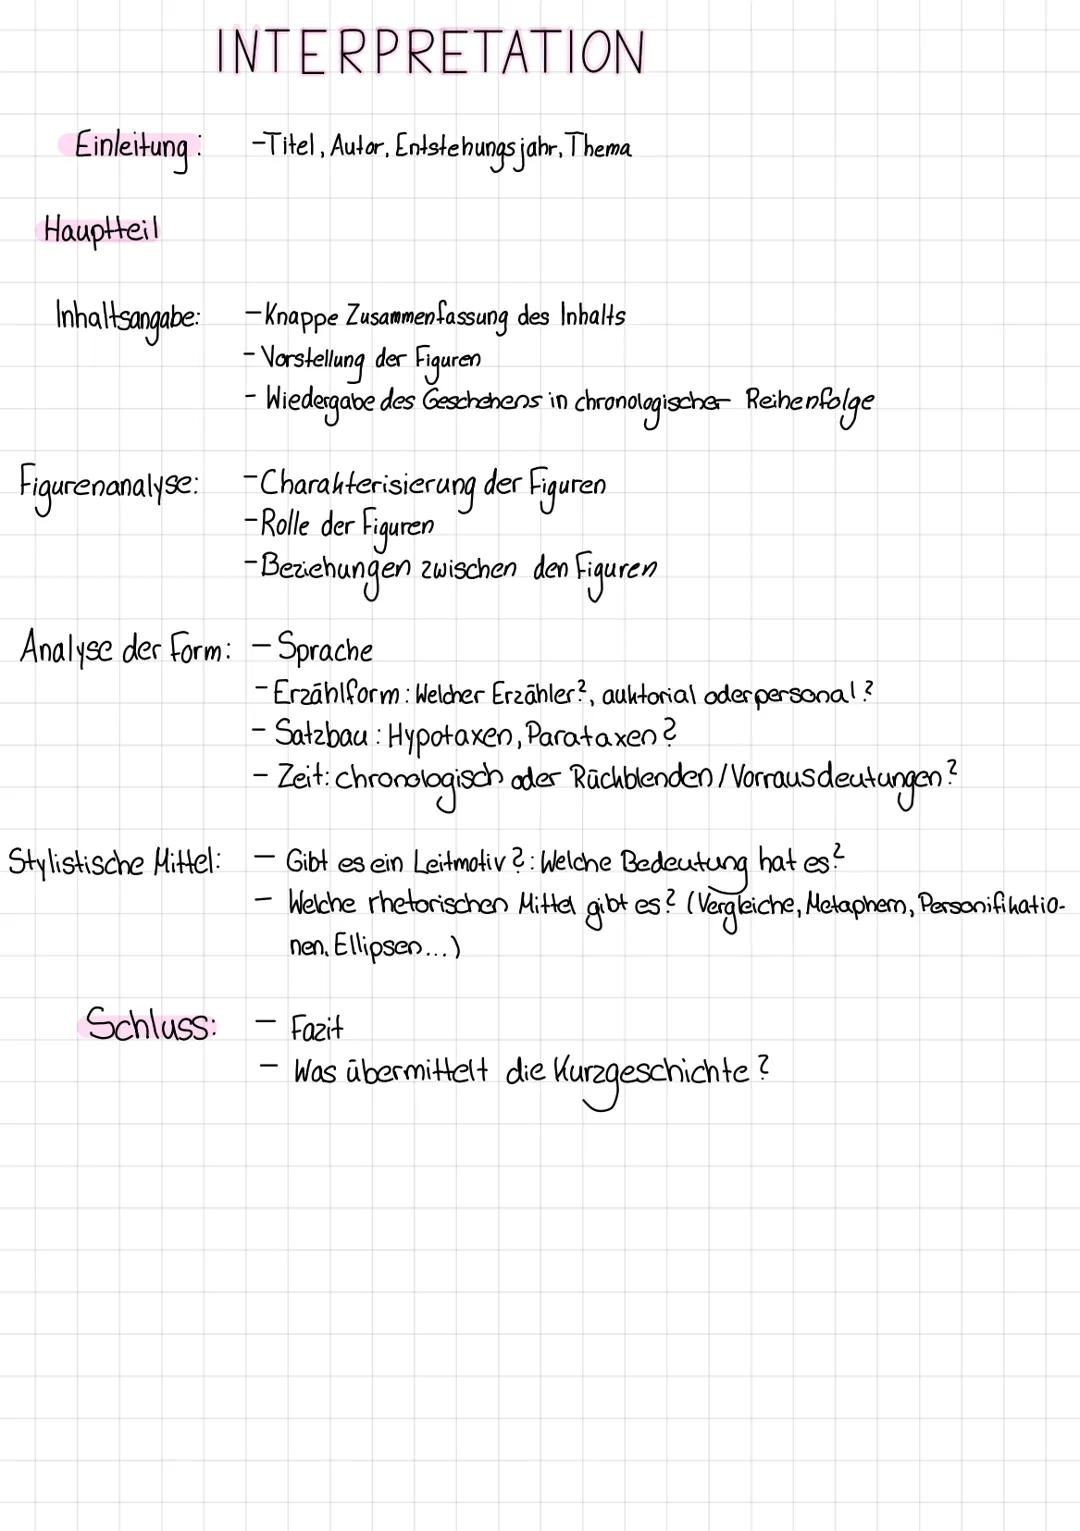 INTERPRETATION
Einleitung: -Titel, Autor, Entstehungsjahr, Thema
Hauptteil
Inhaltsangabe: -Knappe Zusammenfassung des Inhalts
- Vorstellung der Figuren
- Wiedergabe des Geschehens in chronologischer Reihenfolge
Figurenanalyse: -Charakterisierung der Figuren
-Rolle der Figuren
-Beziehungen zwischen den Figuren
Analyse der Form: - Sprache
- Erzählform: Welcher Erzähler?, auktorial oder personal?
- Satzbau: Hypotaxen, Parataxen?
- Zeit: chronologisch oder Rückblenden/Vorrausdeutungen?
Stylistische Mittel: - Gibt es ein Leitmotiv?: Welche Bedeutung hat es?
- Welche rhetorischen Mittel gibt es? (Vergleiche, Metaphern, Personifikatio-
nen, Ellipsen...)
Schluss: - Fazit
- Was übermittelt die Kurzgeschichte?